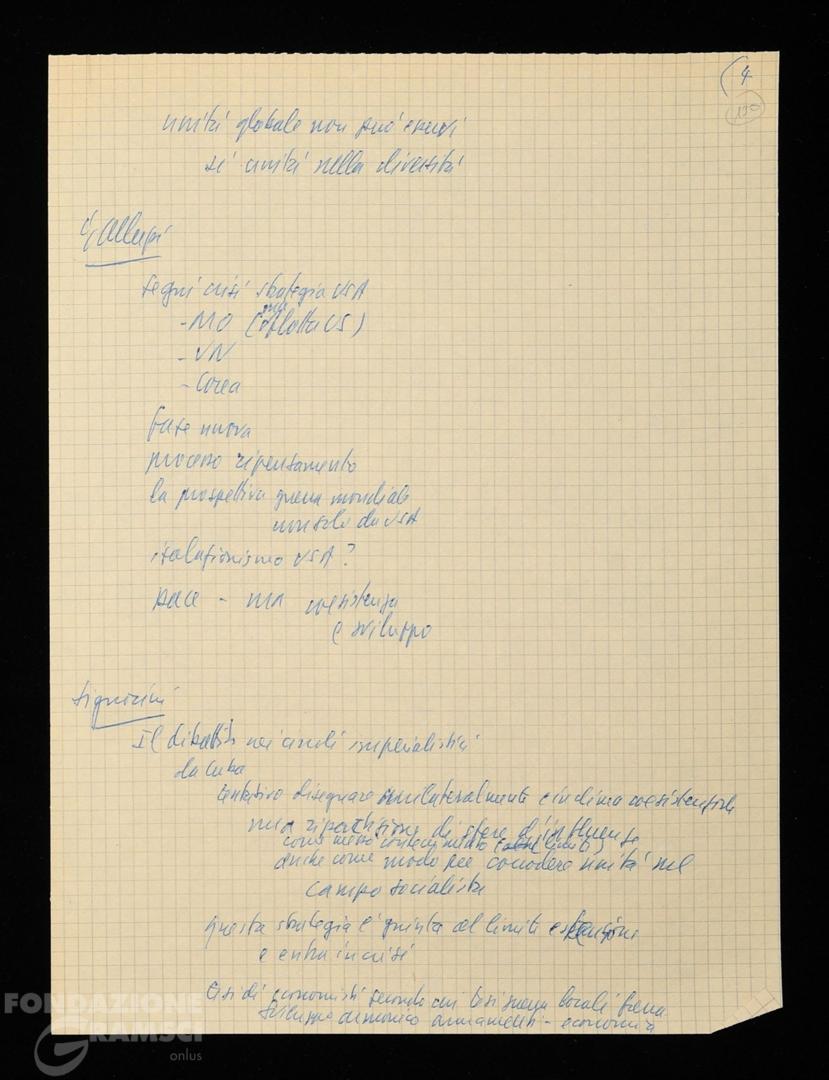 4
150
unità globale non può esservi
sì unità nella diversità
Galluzzi
segni crisi strategia USA
- MO ( flotta US)
- VN
- Corea
fase nuova
processo ripensamento
la prospettiva guerra mondiale
non solo da USA
isolazionismo USA?
pace - ma coesistenza
e sviluppo
Signorini
Il dibattito nei circoli imperialistici
da Cuba
tentativo disegnare unilateralmente e in clima coesistenziale
una ripartizione di sfere d'influenze
come mezzo contenimento
anche come modo per corrodere unità nel
campo socialista
questa strategia è giunta al limite estensione
e entra in crisi
tesi di economisti secondo cui tesi guerra locale frena
sviluppo armonico armamenti - economia
FONDAZIONE
GRAMSCI
onlus